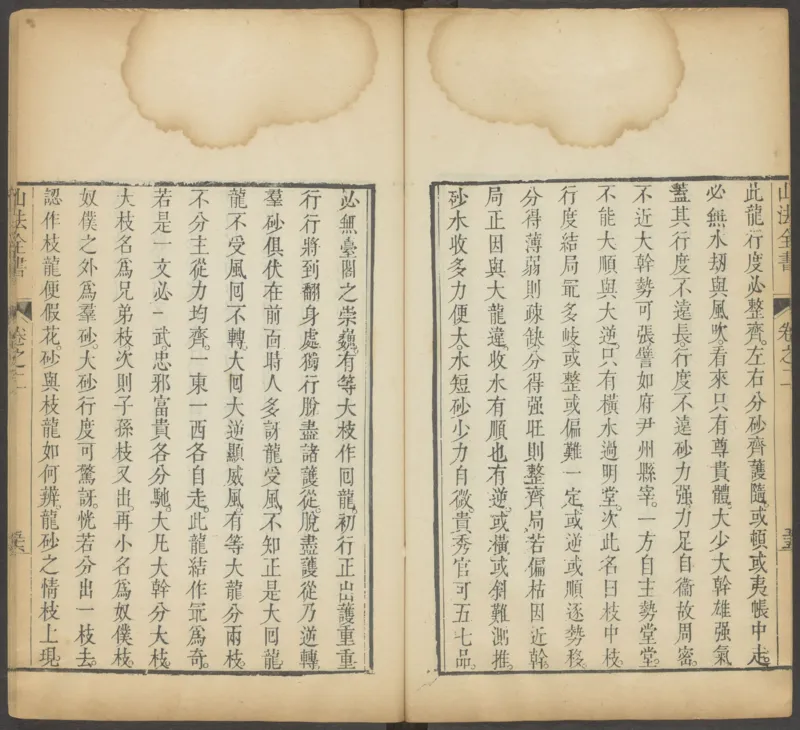 山法全書
卷之二
此龍行度必整齊。左右分砂齊護隨。或頓或夷帳中走。
必無水刼與風吹。看來只有尊貴體。大少大幹雄强氣
蓋其行度不遠長。行度不遠砂力强。力足自衞故周密。
不近大幹勢可張。譬如府尹州縣宰。一方自主勢堂堂。
不能大順與大逆。只有橫水過明堂。次此名曰枝中枝
行度結局㝡多岐。或整或偏難一定。或逆或順逐勢移。
分得薄弱則疎缺。分得强旺則整齊。局若偏枯因近幹。
局正因與大龍違。收水有順也有逆。或橫或斜難測推。
砂水收多力便大。水短砂少力自微。貴秀官可五七品。
必無臺閣之崇巍。有等大枝作囘龍。初行正出護重重
行行將到翻身處。獨行脫盡諸護從。脫盡護從乃逆轉
羣砂俱伏在前面。時人多訝龍受風。不知正是大囘龍
龍不受風囘不轉。大囘大逆顯威風。有等大龍分兩枝
不分主從力均齊。一東一西各自走。此龍結作㝡爲奇。
若是一文必一武。忠邪富貴各分馳。大凡大幹分大枝。
大枝名爲兄弟枝。次則子孫枝又出。再小名爲奴僕枝。
奴僕之外爲羣砂。大砂行度可驚訝。恍若分出一枝去。
認作枝龍便假花。砂與枝龍如何辨。龍砂之情枝上現。
山法全書
卷之二